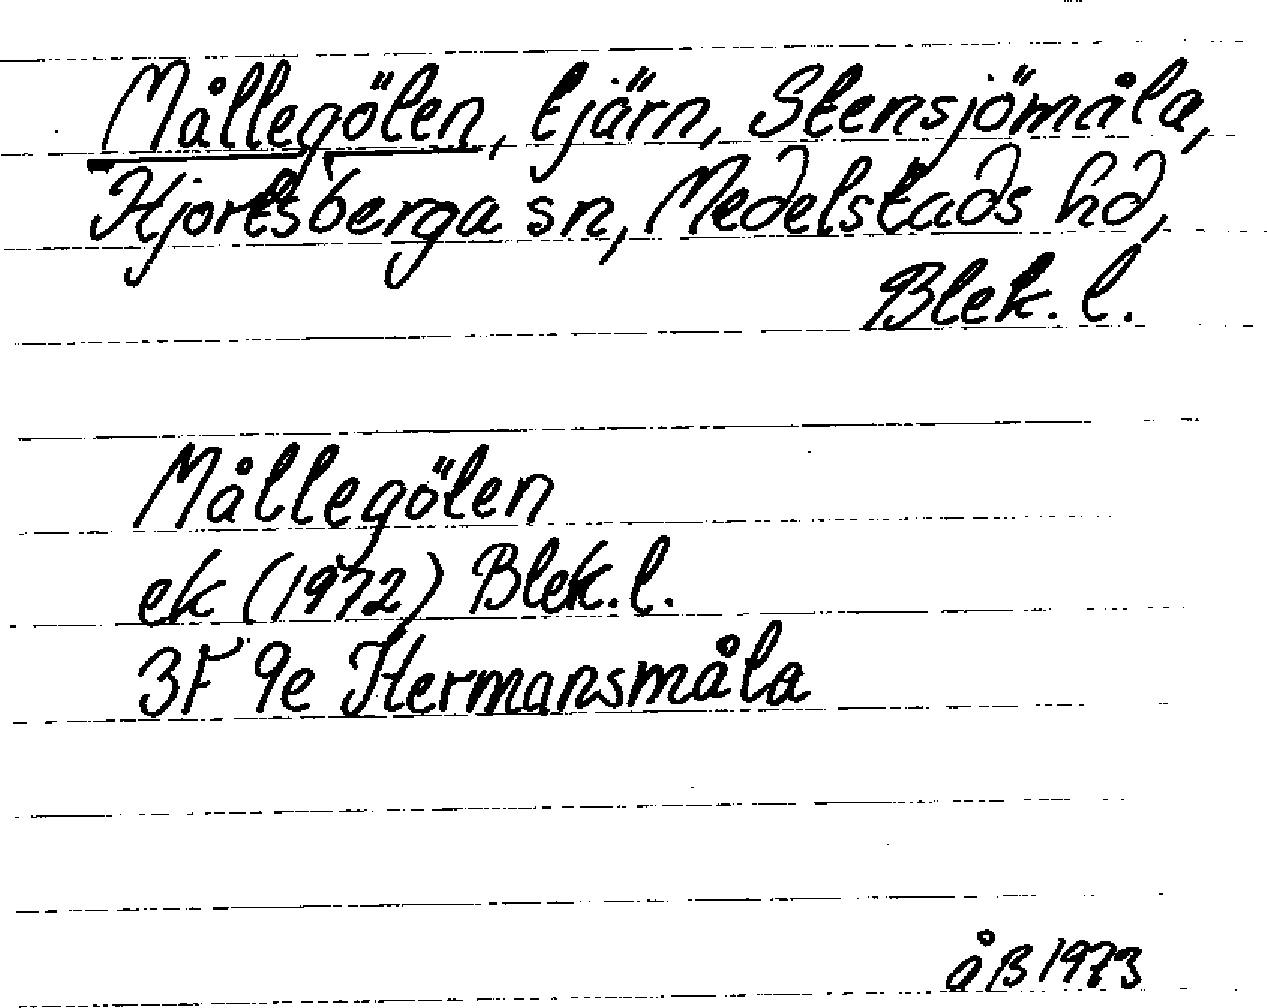 Mållegölen, tjärn, Stensjömåla,
Hjortsberga sn, Medelstads hd,
Blek. l.
Mållegölen
ek (1972) Blek. l.
3F 9e Hermansmåla
åB 1973